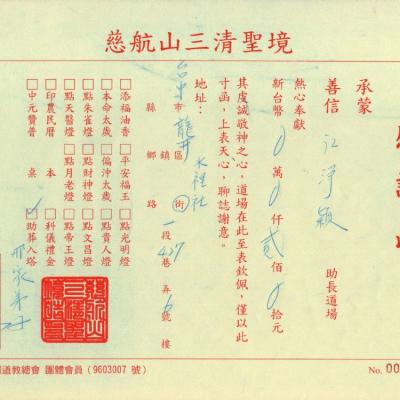 慈航山三清聖境
承蒙
善信 江淨穎 助長道場
熱心奉獻
新台幣 0 萬 0 仟 貳 佰 0 拾元
其虔誠敬神之心，道場在此至表欽佩，僅以此
寸函，上表天心，聊誌謝意。
地址：台中 縣市 龍井 鄉鎮區 水裡社 路街 一段 437 巷 弄 6 號 樓
□添福油香 □平安福王 □點光明燈
□本命太歲 □偏沖太歲 □點貴人燈
□點朱雀燈 □點財神燈 □點文昌燈
□點天醫燈 □點月老燈 □點帝王燈
□印農民曆 本 □科儀禮金
□中元贊普 桌 ☑助葬入塔
道教總會 團體會員 (9603007 號)
No. 00